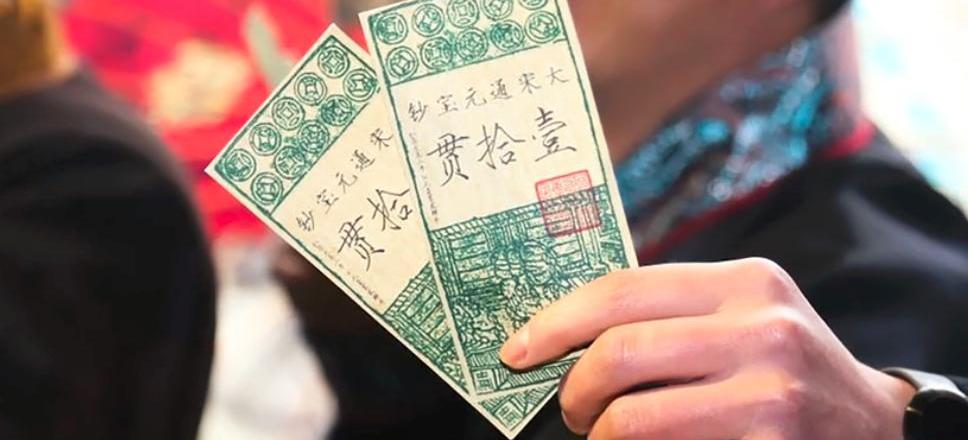 大宋通元宝钞
壹拾贯
宋通元宝钞
拾贯